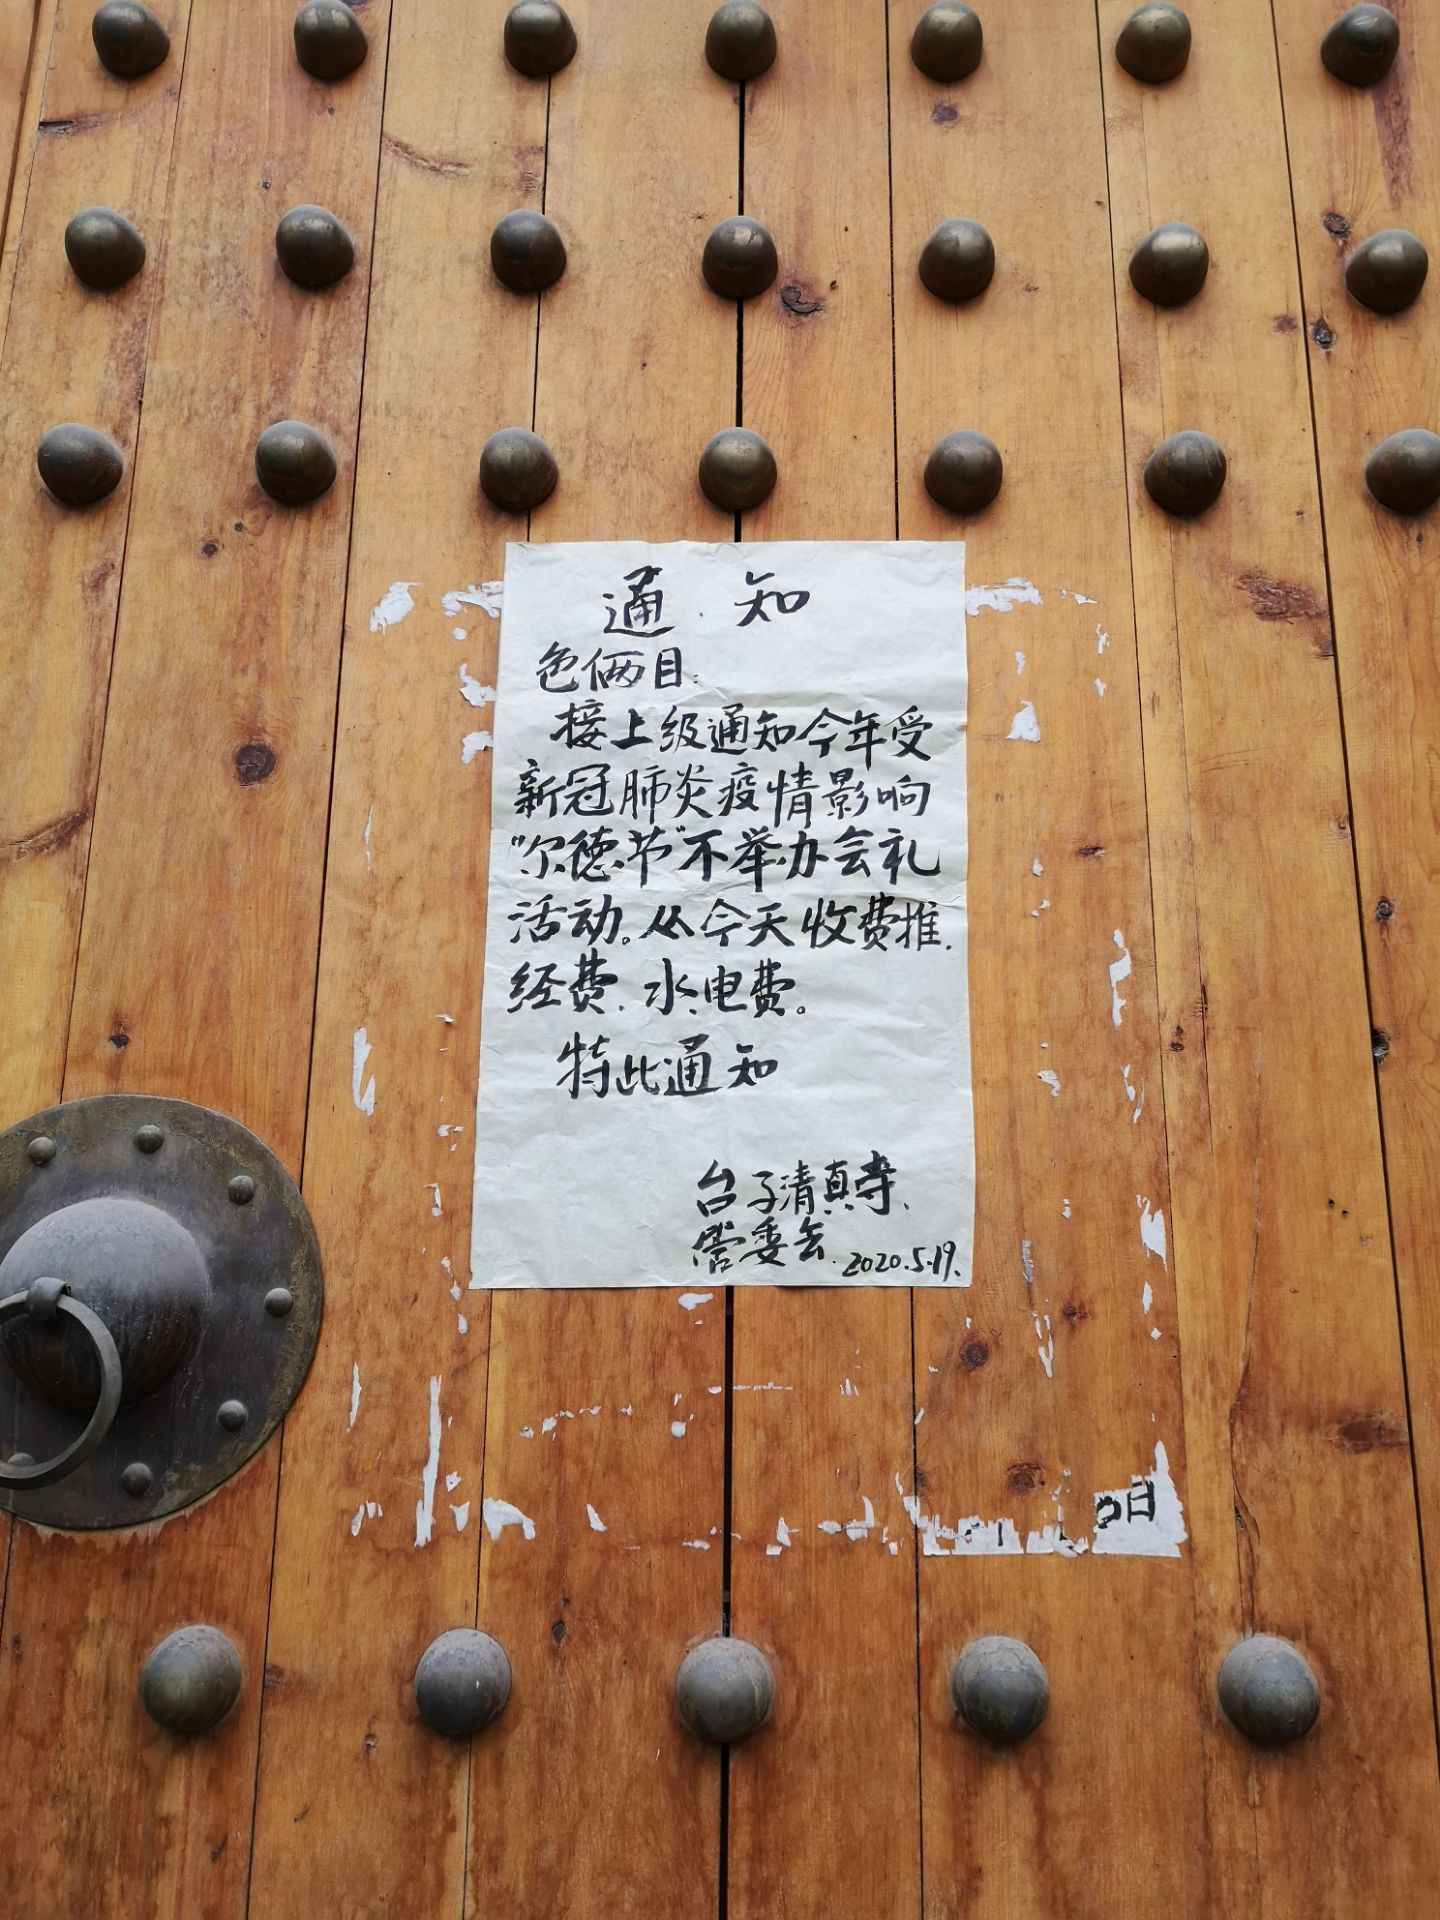 通知
色俩目:
接上级通知今年受
新冠肺炎疫情影响
"尔德节"不举办会礼
活动。从今天收费推.
经费.水.电费。
特此通知
台子清真寺.
管委会.2020.5.19.
日